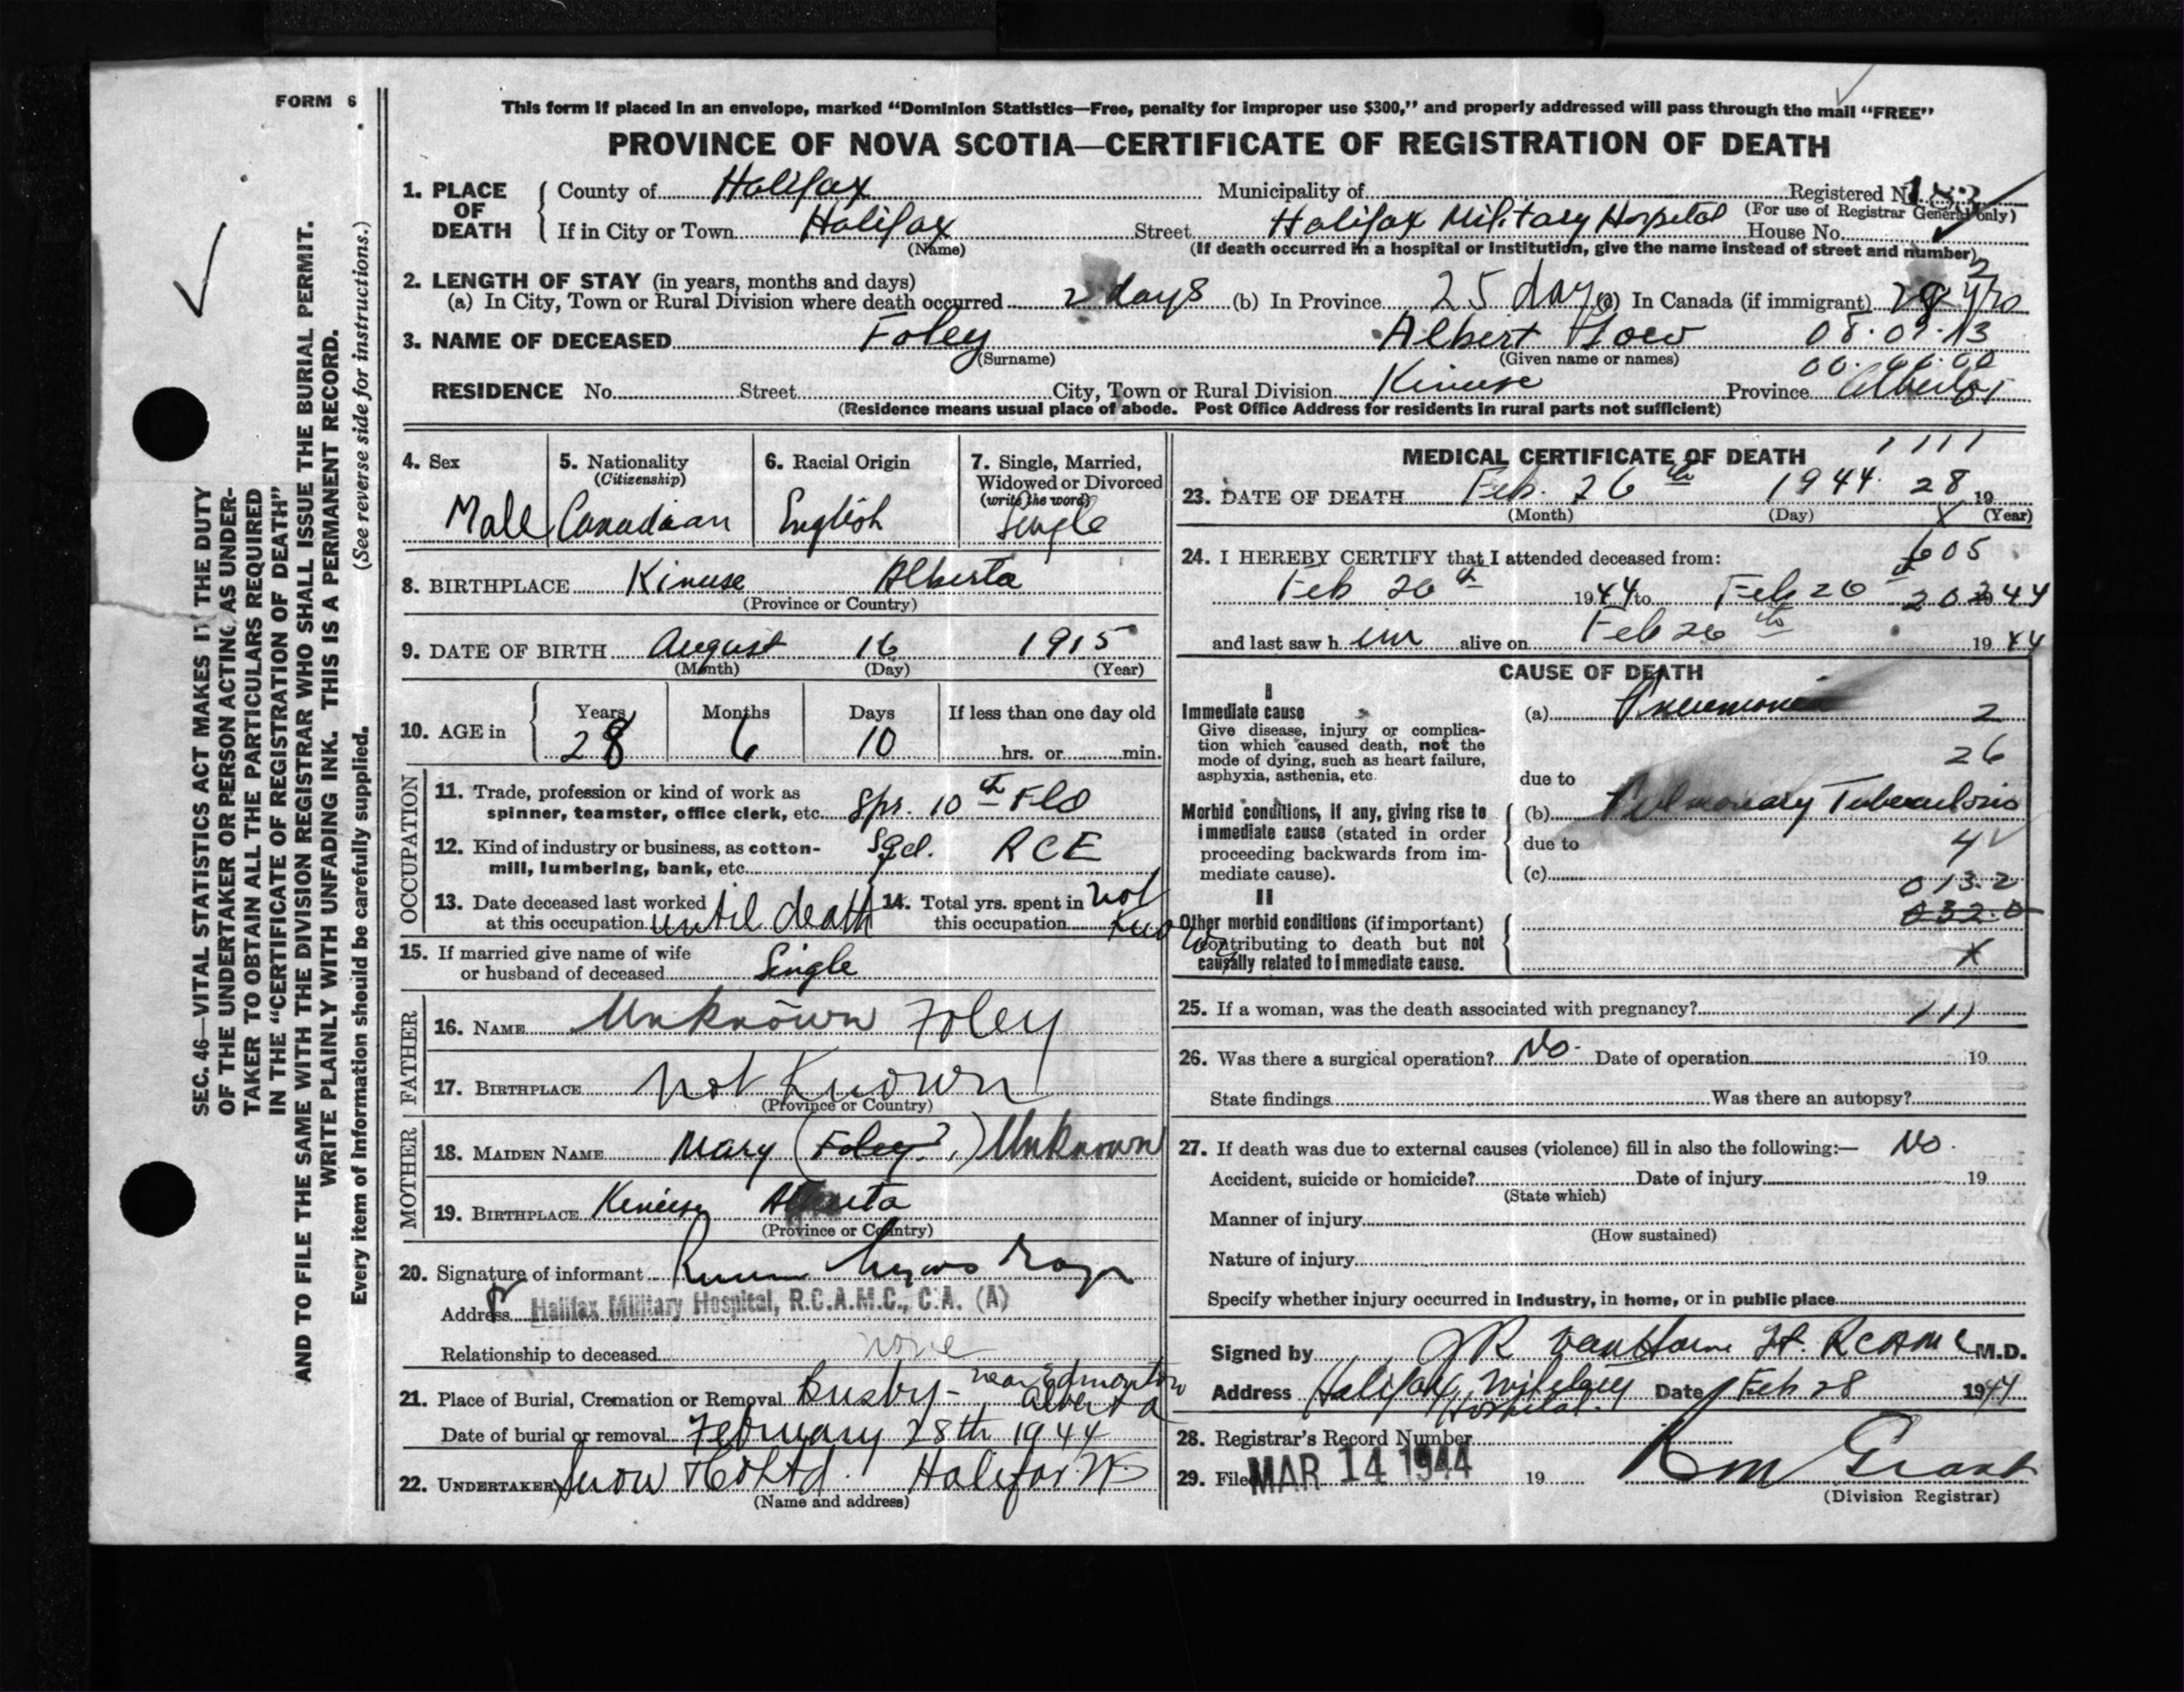 FORM 6
This form if placed in an envelope, marked “Dominion Statistics—Free, penalty for improper use $300,” and properly addressed will pass through the mail “FREE”
PROVINCE OF NOVA SCOTIA—CERTIFICATE OF REGISTRATION OF DEATH
SEC. 46—VITAL STATISTICS ACT MAKES IT THE DUTY
OF THE UNDERTAKER OR PERSON ACTING AS UNDER-
TAKER TO OBTAIN ALL THE PARTICULARS REQUIRED
IN THE “CERTIFICATE OF REGISTRATION OF DEATH”
AND TO FILE THE SAME WITH THE DIVISION REGISTRAR WHO SHALL ISSUE THE BURIAL PERMIT.
WRITE PLAINLY WITH UNFADING INK. THIS IS A PERMANENT RECORD.
Every item of information should be carefully supplied. (See reverse side for instructions.)
1. PLACE OF DEATH County of Halifax Municipality of Registered N 183
(For use of Registrar General only)
If in City or Town Halifax Street Halifax Military Hospital House No.
(Name) (If death occurred in a hospital or institution, give the name instead of street and number)
2. LENGTH OF STAY (in years, months and days)
(a) In City, Town or Rural Division where death occurred 2 days (b) In Province 25 days (c) In Canada (if immigrant) 28 yrs
3. NAME OF DECEASED Foley Albert 08.09.13
(Surname) (Given name or names) 00.00.00
RESIDENCE No. Street City, Town or Rural Division Kinuse Province Alberta
(Residence means usual place of abode. Post Office Address for residents in rural parts not sufficient)
4. Sex 5. Nationality (Citizenship) 6. Racial Origin 7. Single, Married, Widowed or Divorced (write the word)
Male Canadian English Single
8. BIRTHPLACE Kinuse Alberta
(Province or Country)
9. DATE OF BIRTH August 16 1915
(Month) (Day) (Year)
10. AGE in Years Months Days If less than one day old
28 6 10 hrs. or min.
OCCUPATION
11. Trade, profession or kind of work as
spinner, teamster, office clerk, etc. Spr. 10th Fld
12. Kind of industry or business, as cotton-
mill, lumbering, bank, etc. Sqd. RCE
13. Date deceased last worked
at this occupation until death
14. Total yrs. spent in
this occupation not known
15. If married give name of wife
or husband of deceased Single
FATHER
16. NAME Unknown Foley
17. BIRTHPLACE not Known
(Province or Country)
MOTHER
18. MAIDEN NAME Mary (Foley?) Unknown
19. BIRTHPLACE Kinuse Alberta
(Province or Country)
20. Signature of informant
Address Halifax Military Hospital, R.C.A.M.C., C.A. (A)
Relationship to deceased none
21. Place of Burial, Cremation or Removal Busby - near Edmonton Alberta
Date of burial or removal February 28th 1944
22. UNDERTAKER Snow & Co Ltd. Halifax N S
(Name and address)
MEDICAL CERTIFICATE OF DEATH 1 1 1 1
23. DATE OF DEATH Feb. 26th 1944. 28 19
(Month) (Day) X (Year)
24. I HEREBY CERTIFY that I attended deceased from: 605
Feb 26th 1944 to Feb 26th 20 2 44
and last saw h im alive on Feb 26th 1944
CAUSE OF DEATH
I
Immediate cause
Give disease, injury or complica-
tion which caused death, not the
mode of dying, such as heart failure,
asphyxia, asthenia, etc.
(a) Pneumonia 2
26
due to
Morbid conditions, if any, giving rise to
immediate cause (stated in order
proceeding backwards from im-
mediate cause).
(b) Pulmonary Tuberculosis
due to 4
(c)
013.2
032.0
II
Other morbid conditions (if important)
contributing to death but not
causally related to immediate cause.
X
25. If a woman, was the death associated with pregnancy? 111
26. Was there a surgical operation? No. Date of operation 19
State findings Was there an autopsy?
27. If death was due to external causes (violence) fill in also the following:— No.
Accident, suicide or homicide? Date of injury 19
(State which)
Manner of injury
(How sustained)
Nature of injury
Specify whether injury occurred in industry, in home, or in public place
Signed by J R VanHorne Lt. RCAMC M.D.
Address Halifax Military Hospital. Date Feb 28 1944
28. Registrar's Record Number
29. Filed MAR 14 1944 19 Grant
(Division Registrar)